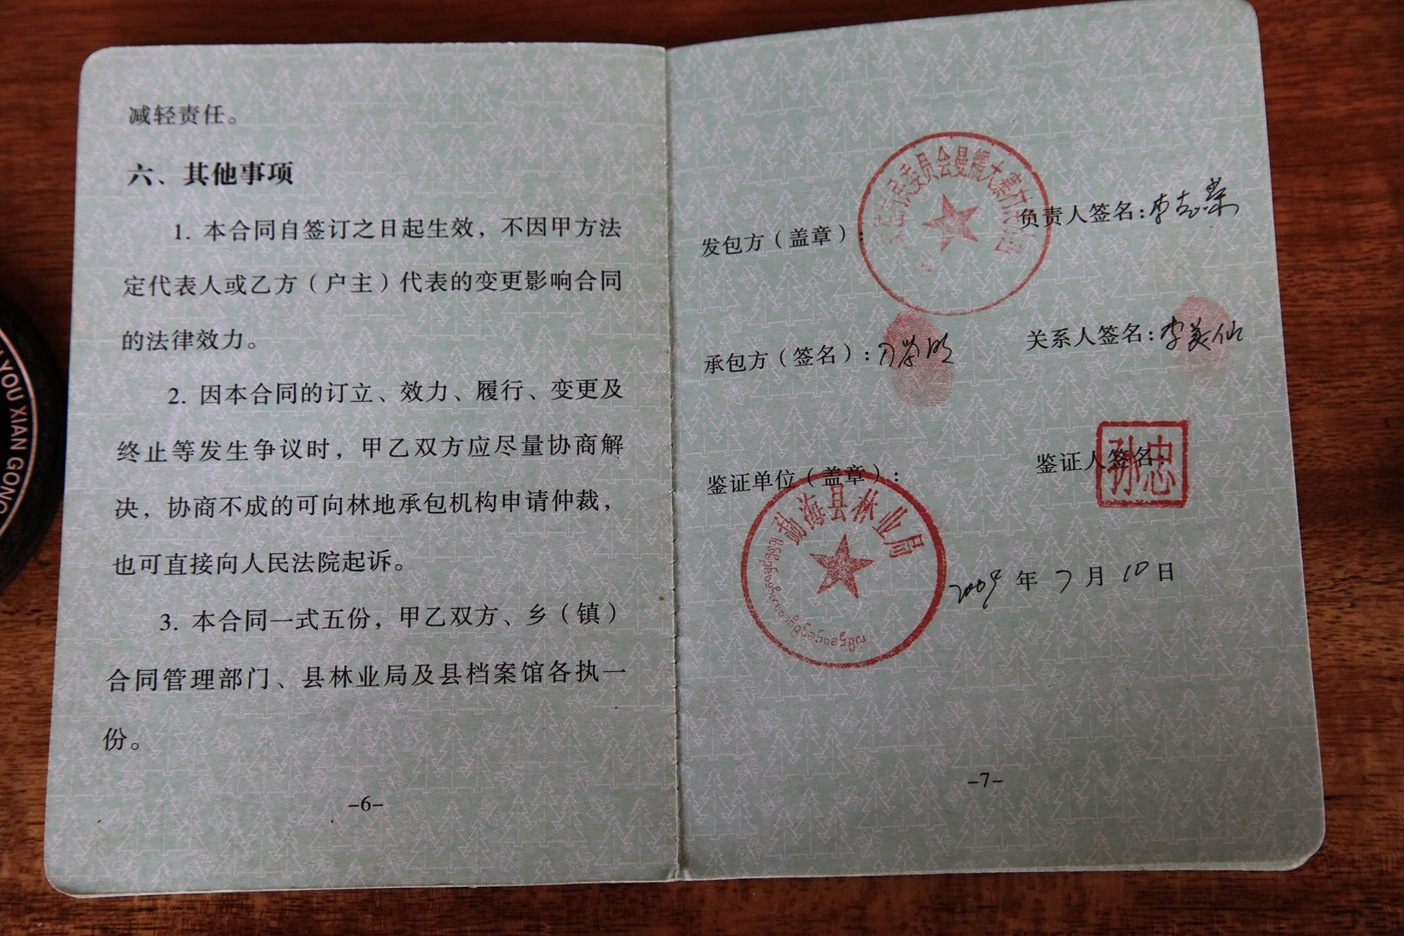 减轻责任。
六、其他事项
1. 本合同自签订之日起生效，不因甲方法
定代表人或乙方（户主）代表的变更影响合同
的法律效力。
2. 因本合同的订立、效力、履行、变更及
终止等发生争议时，甲乙双方应尽量协商解
决，协商不成的可向林地承包机构申请仲裁，
也可直接向人民法院起诉。
3. 本合同一式五份，甲乙双方、乡（镇）
合同管理部门、县林业局及县档案馆各执一
份。
-6-
发包方（盖章）：
委员会曼糯大寨
负责人签名：李志荣
承包方（签名）：刀学明
关系人签名：李美仙
鉴证单位（盖章）：
勐海县林业局
鉴证人签名：
孙忠
2009 年 7 月 10 日
-7-
YOU XIAN GONG